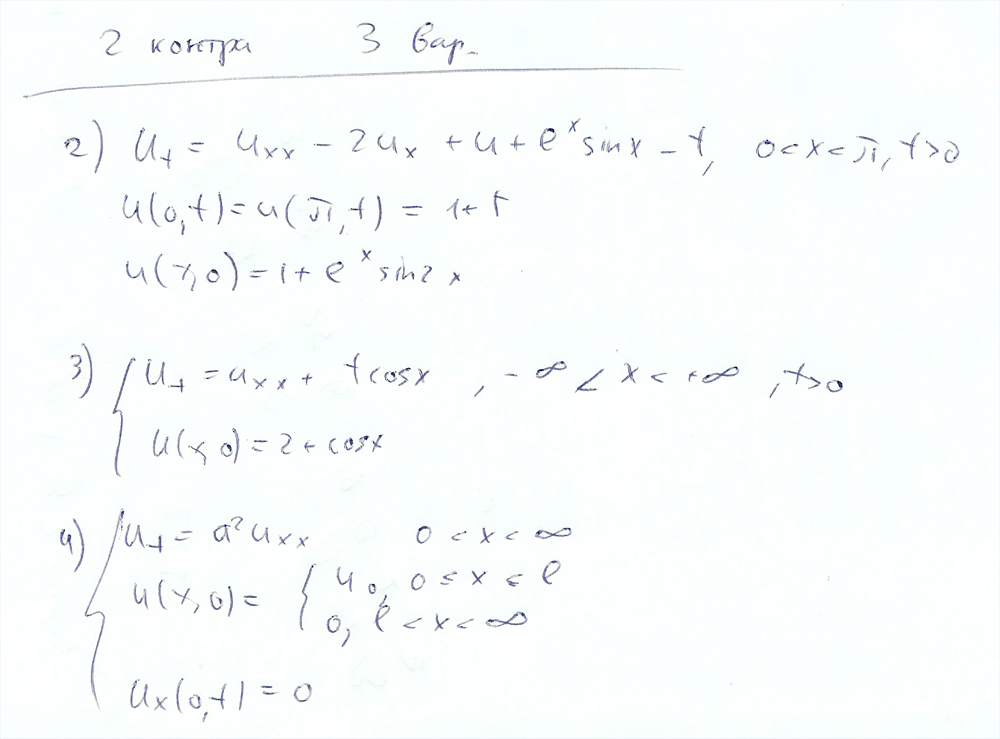 2 контр 3 вар.
2) u_t = u_xx - 2u_x + u + e^x sin x - t, 0 < x < π, t > 0
u(0,t) = u(π,t) = 1 + t
u(x,0) = 1 + e^x sin 2x
3) { u_t = u_xx + t cos x, -∞ < x < +∞, t > 0
u(x,0) = 2 + cos x
4) { u_t = a² u_xx 0 < x < ∞
u(x,0) = { u_0, 0 ≤ x < l
0, l < x < ∞
u_x(0,t) = 0